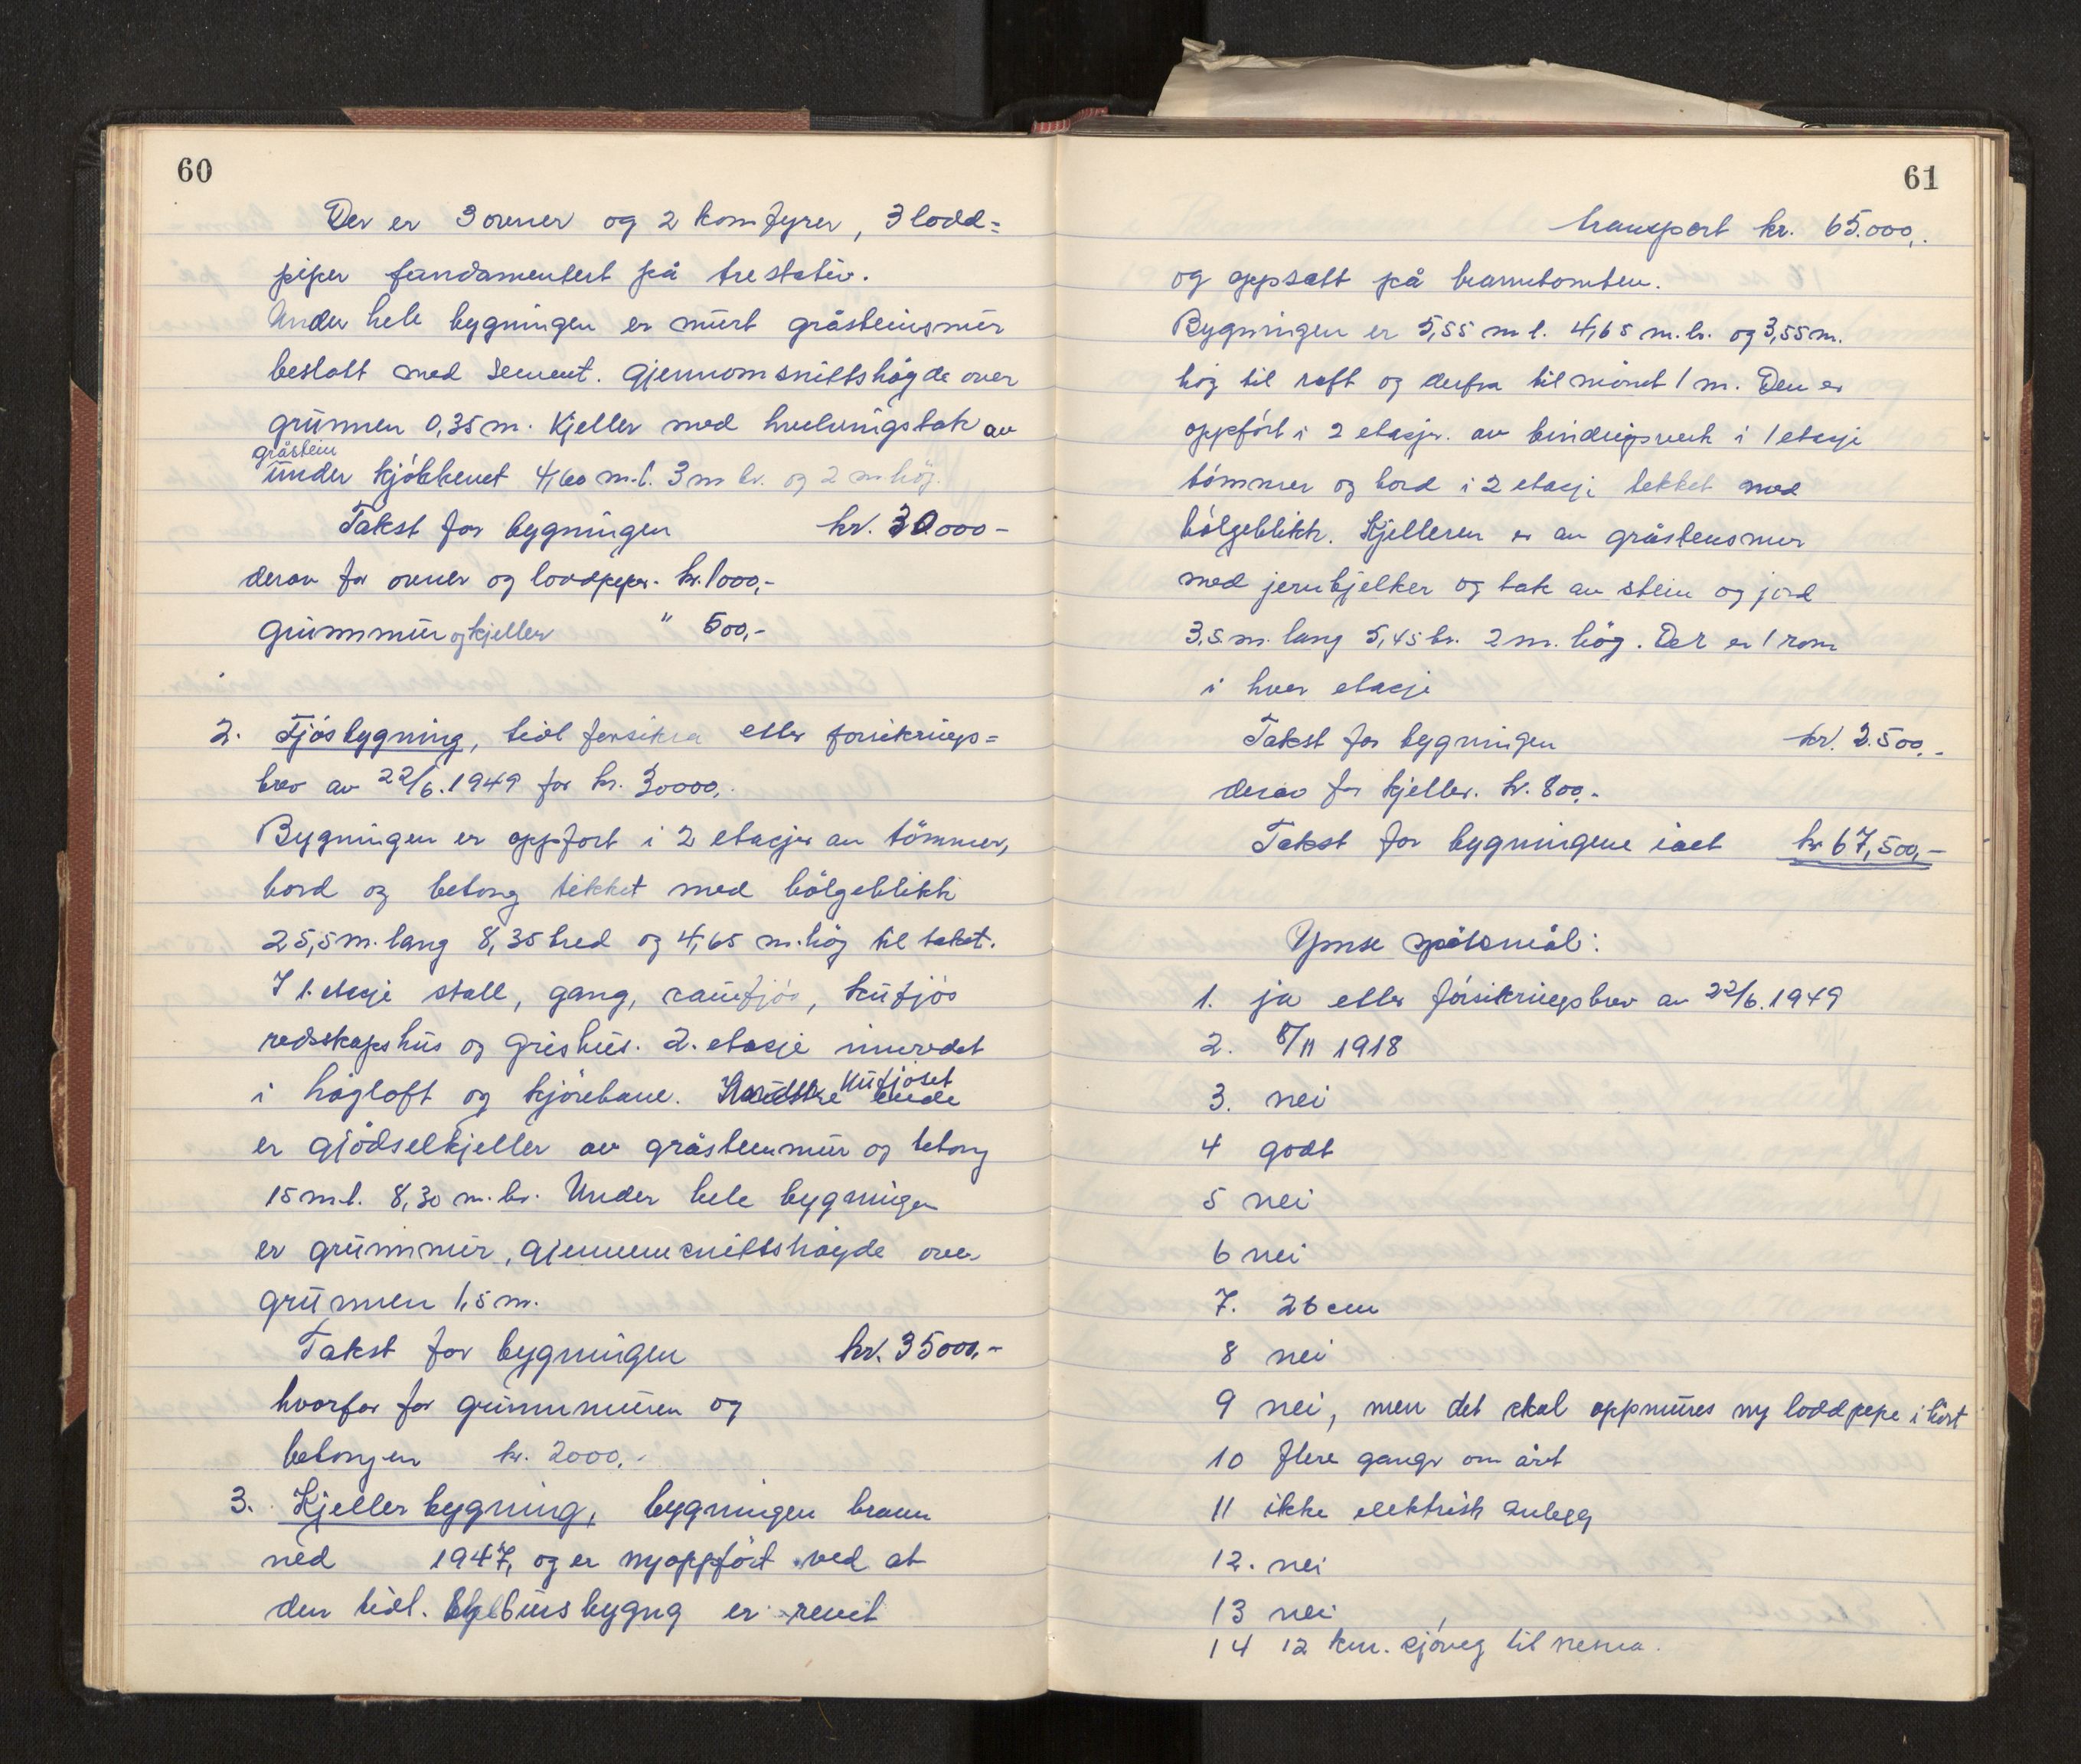 60
Der er 3 ovner og 2 komfyrer, 3 lodd=
piper fundamentert på trestativ.
Under hele bygningen er mürt gråsteinsmür
beslått med sement. Gjennomsnittshøgde over
grünnen 0,35 m. Kjeller med hvelvingstak av
gråstein
ünder kjøkkenet 4,60 m.l. 3 m br. og 2 m høg.
Takst for bygningen kr. 30000-
derav for ovner og loddpiper. kr. 1000,-
Grünnmür og kjeller " 500,-
2. Fjøsbygning, tidl forsikra etter forsikrings=
brev av 22/6.1949 for kr. 30000,-
Bygningen er oppført i 2 etasjer av tömmer,
bord og betong tekket med bölgeblikk
25,5 m. lang 8,35 bred og 4,65 m. høg til taket.
I 1. etasje stall, gang, sauefjøs, küfjøs
redskapshüs og grishüs. 2. etasje innredet
i høgloft og kjørebane. küfjøset
er gjødselkjeller av gråsteinmür og betong
15 m.l. 8,30 m. br. Under hele bygningen
er grünnmür, gjennemsnittshøgde over
grünnen 1,5 m.
Takst for bygningen kr. 35000,-
hvorfor for grünnmüren og
betongen kr. 2000,-
3. Kjellerbygning, bygningen brann
ned 1947, og er nyoppført ved at
den tidl. er revet
61
transport kr. 65.000,-
og oppsatt på branntomten.
Bygningen er 5,55 m l. 4,65 m. br. og 3,55 m.
høg til raft og derfra til mønet 1 m. Den er
oppført i 2 etasjer. av bindingsverk i 1 etasje
tømmer og bord i 2 etasje tekket med
bølgeblikk. Kjelleren er av gråstensmur
med jernbjelker og tak av stein og jord
3,5 m. lang 5,45 br. 2 m. høg. Det er 1 rom
i hver etasje
Takst for bygningen kr. 2.500,-
derav for kjeller. kr. 800,-
Takst for bygningene ialt kr 67,500,-
Ymse spörsmål:
1. ja etter försikringsbrev av 22/6.1949
2. 8/11 1918
3. nei
4 godt
5 nei
6 nei
7. 26 cm
8 nei
9 nei, men det skal oppmüres ny loddpipe i høst
10 flere ganger om året
11 ikke elektrisk anlegg
12. nei
13 nei
14 12 km. sjøveg til nesna.